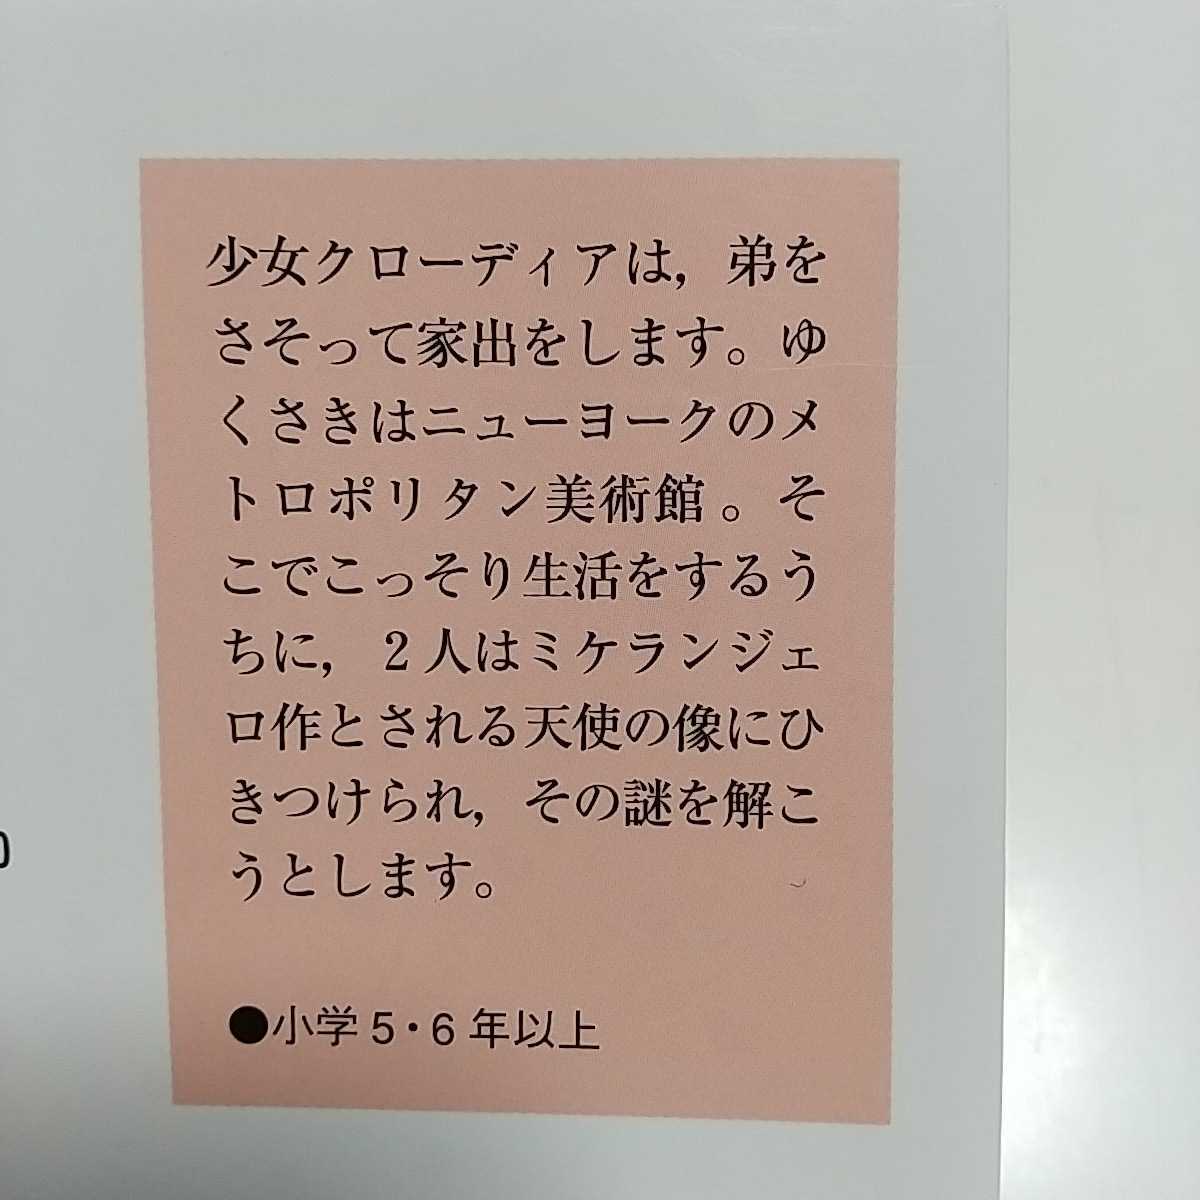 少女クローディアは，弟を
さそって家出をします。ゆ
くさきはニューヨークのメ
トロポリタン美術館。そ
こでこっそり生活をするう
ちに，2人はミケランジェ
ロ作とされる天使の像にひ
きつけられ，その謎を解こ
うとします。
●小学5・6年以上